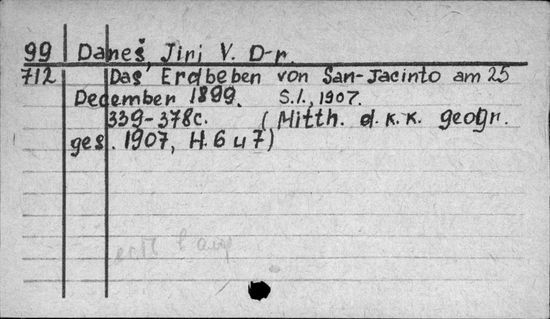 99 Daneš, Jiri V. D-r.
712 Das Erdbeben von San-Jacinto am 25
December 1899. S.l., 1907.
339-378c. (Mitth. d. K. K. geogr.
ges. 1907, H. 6 u 7)